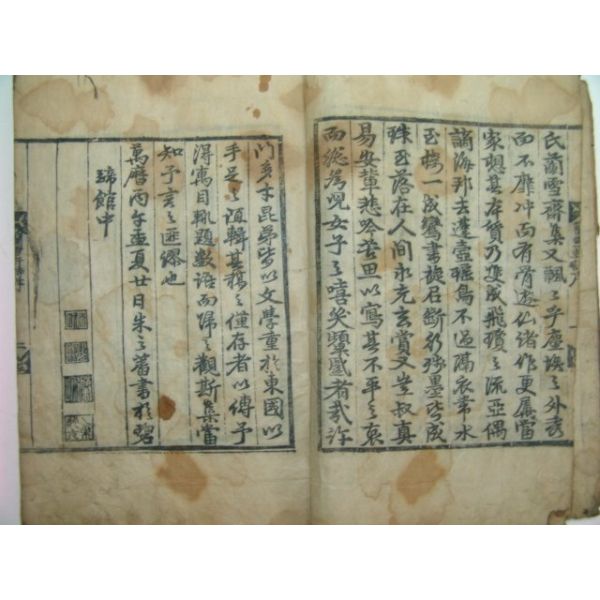 氏蘭雪齋集又飄〻乎塵埃之外秀
而不靡冲而有骨遊仙諸作更屬當
家想其本質乃雙成飛瓊之流亞偶
謫海邦去蓬壺瑤島不過隔衣帶水
玉樓一成鸞書旋召斷行殘墨皆成
珠玉落在人間永充玄賞又豈叔真
易安輩悲吟苦思以寫其不平之衷
而總為兒女子之嘻笑顰蹙者哉許
門多才昆弟皆以文學重於東國以
手足之誼輯其稿之僅存者以傳予
得寓目輒題數語而歸之觀斯集當
知予言之匪謬也
萬曆丙午孟夏廿日朱之蕃書於碧
蹄館中